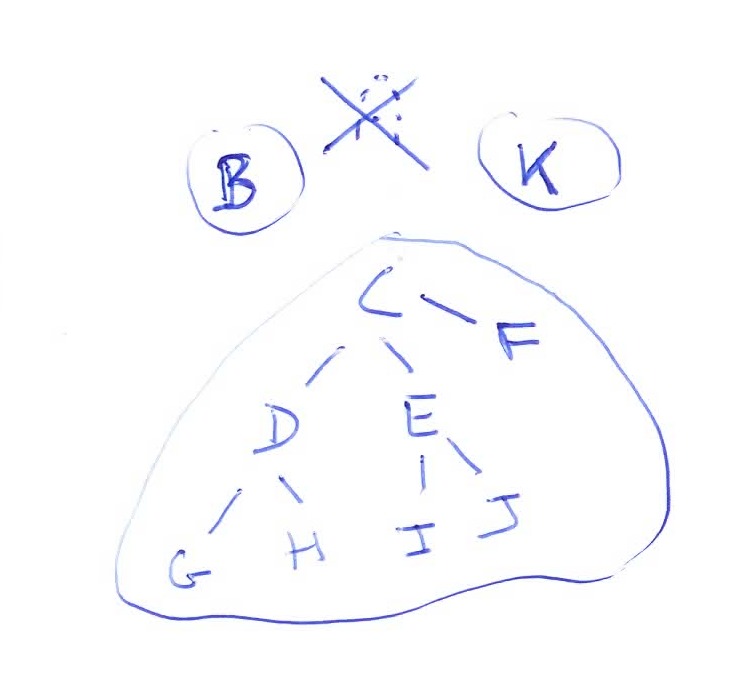 B K
C
F
D E
G H I J